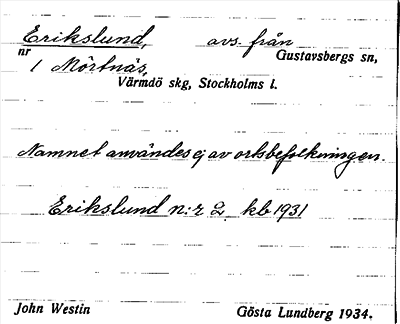 Erikslund, avs. från
nr 1 Mörtnäs, Gustavsbergs sn,
Värmdö skg, Stockholms l.
Namnet användes ej av ortsbefolkningen.
Erikslund n:r 2 kb 1931
John Westin Gösta Lundberg 1934.